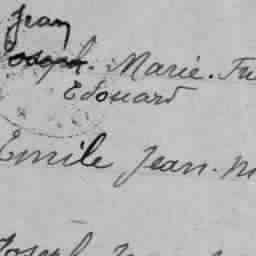 Jean
Joseph. Marie. Fr
Edouard
Emile Jean. M
Joseph